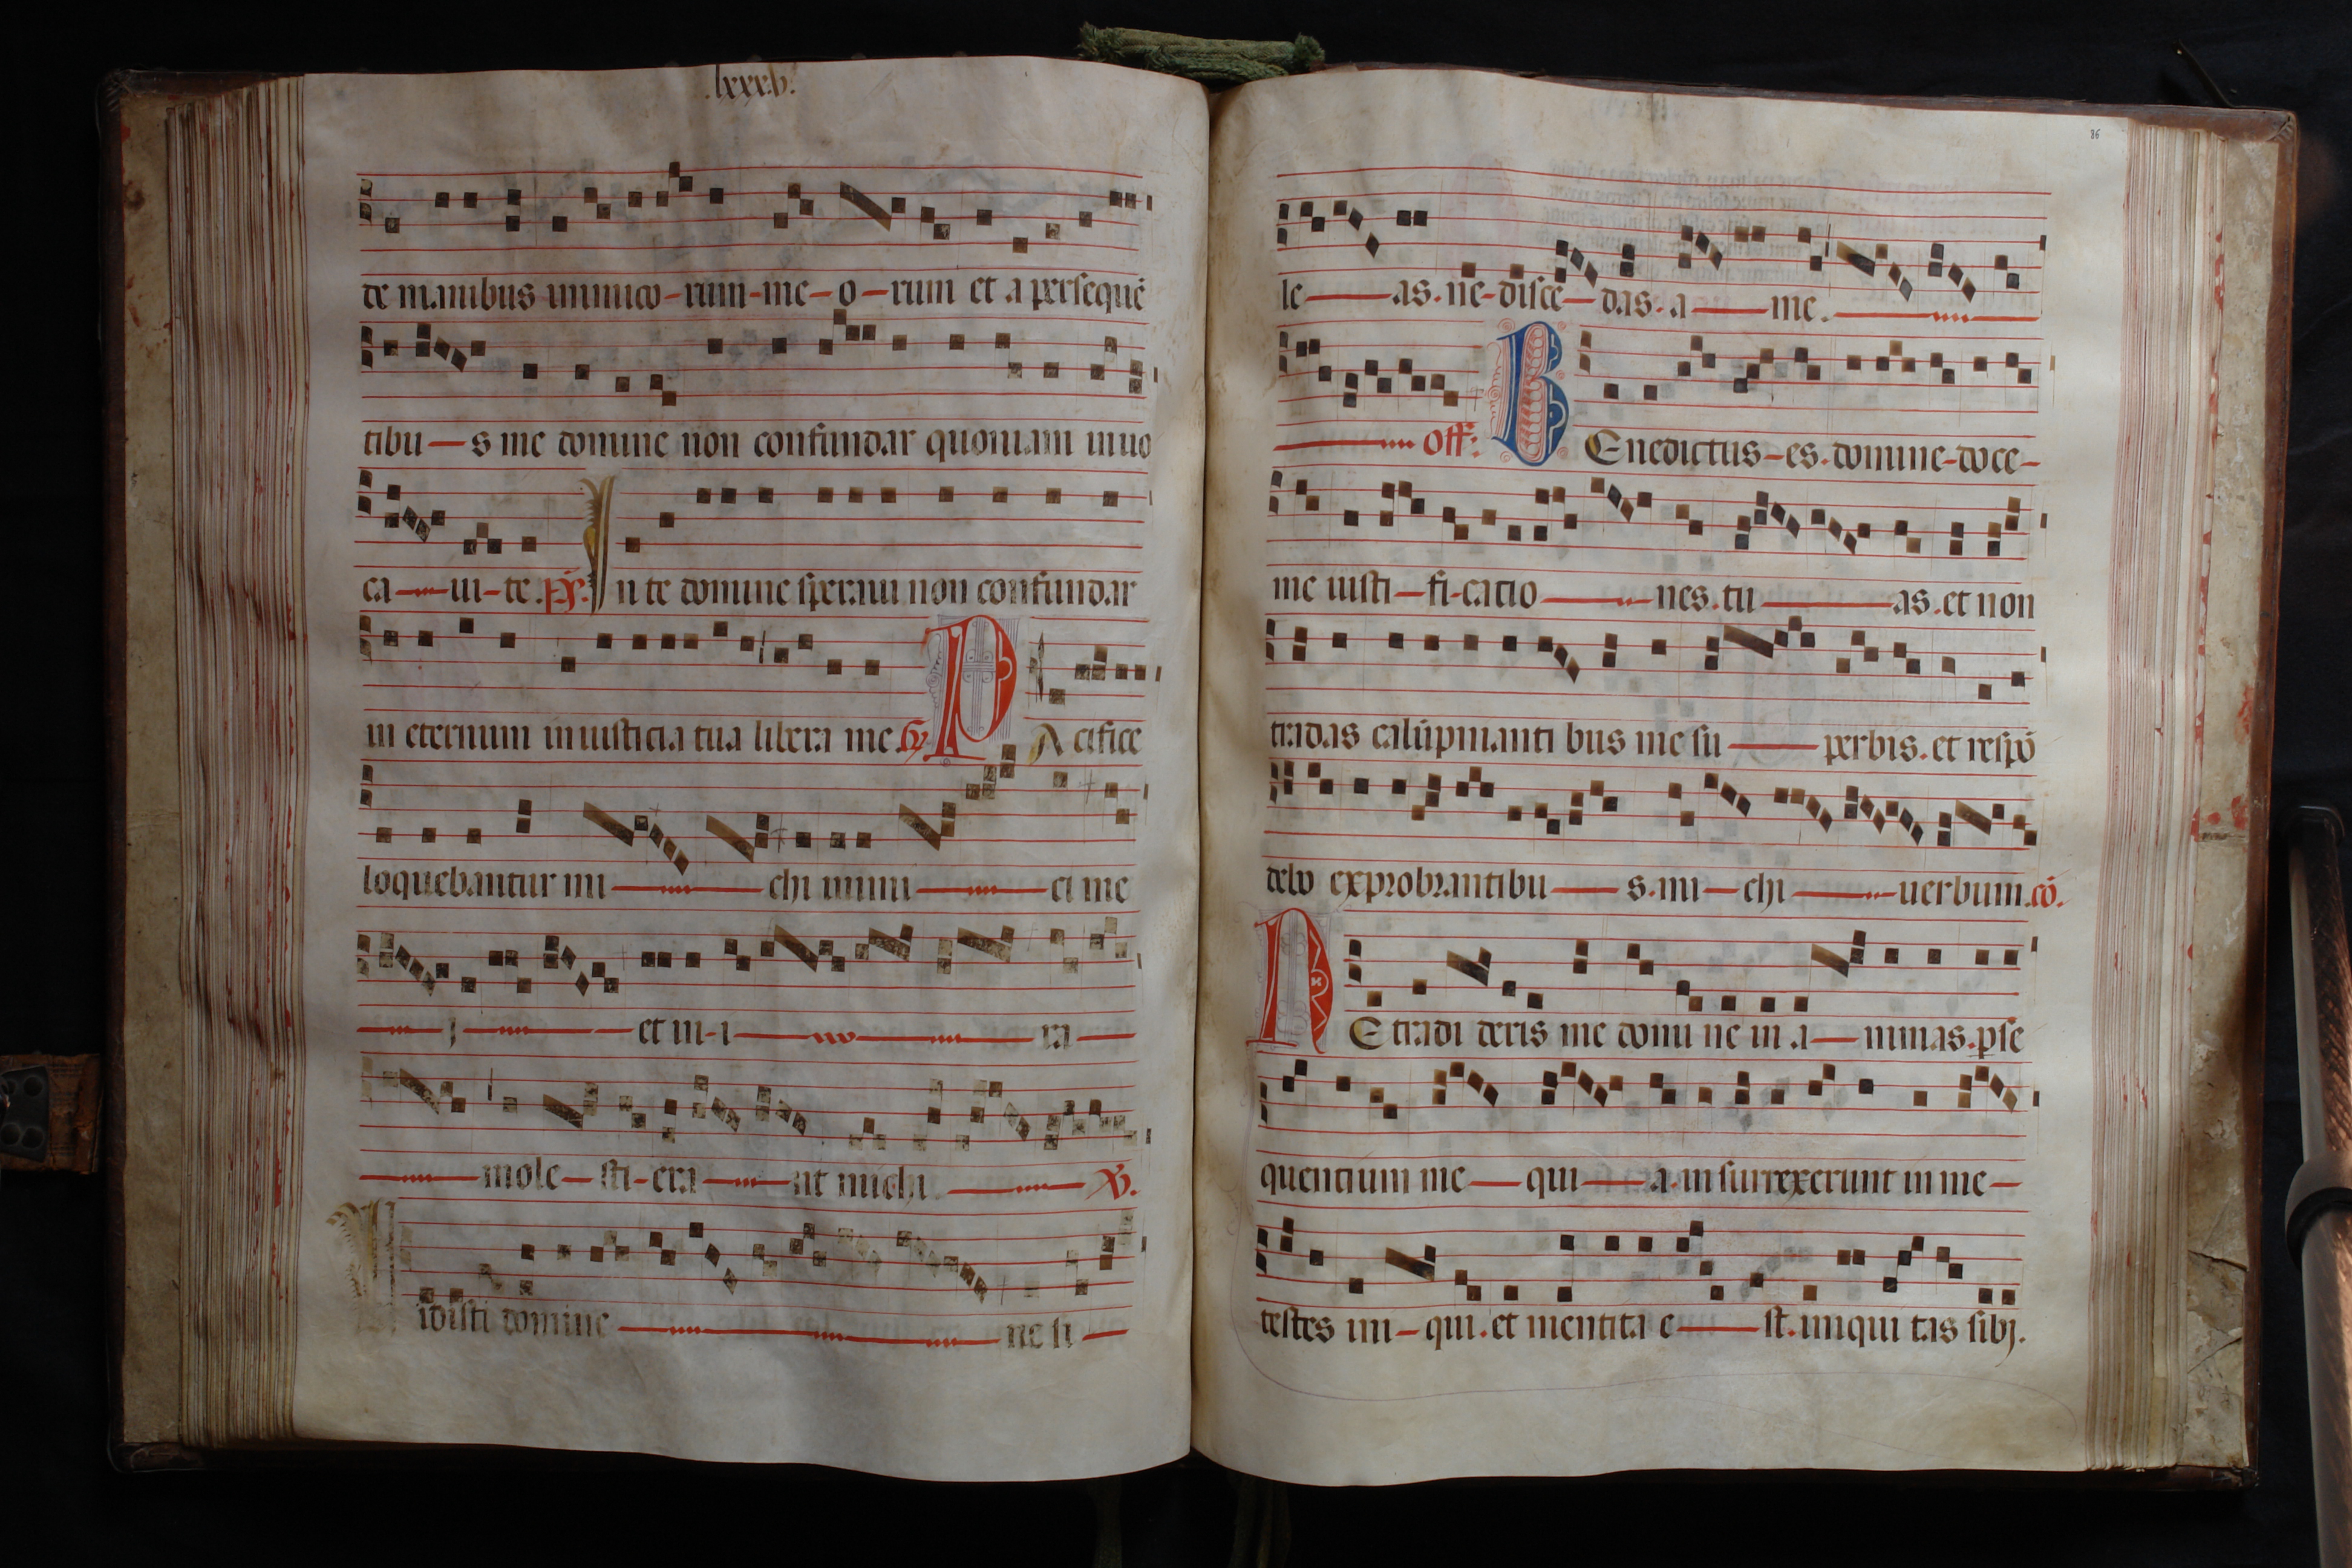 .lxxxv.
de manibus inimico-rum-me-o-rum et a persequē
tibu-s me domine non confundar quoniam inuo
ca-ui-te.ps. In te domine speraui non confundar
in eternum in iusticia tua libera me. Gr PAcifice
loquebantur mi-chi inimi-ci me
j-et in-i-ra
-mole-sti-era-nt michi. V.
Vidisti domine-ne si-
86
le-as.ne-disce-das.a-me.
Off. BEnedictus-es.domine-doce-
me iusti-fi-catio-nes.tu-as.et non
tradas calūpmanti bus me su-perbis.et respō
debo exprobrantibu-s.mi-chi-uerbum.cō.
NE tradi deris me domi ne in a-nimas.pse
quentium me-qui-a.in surrexerunt in me-
testes ini-qui.et mentita e-st.iniqui tas sibj.